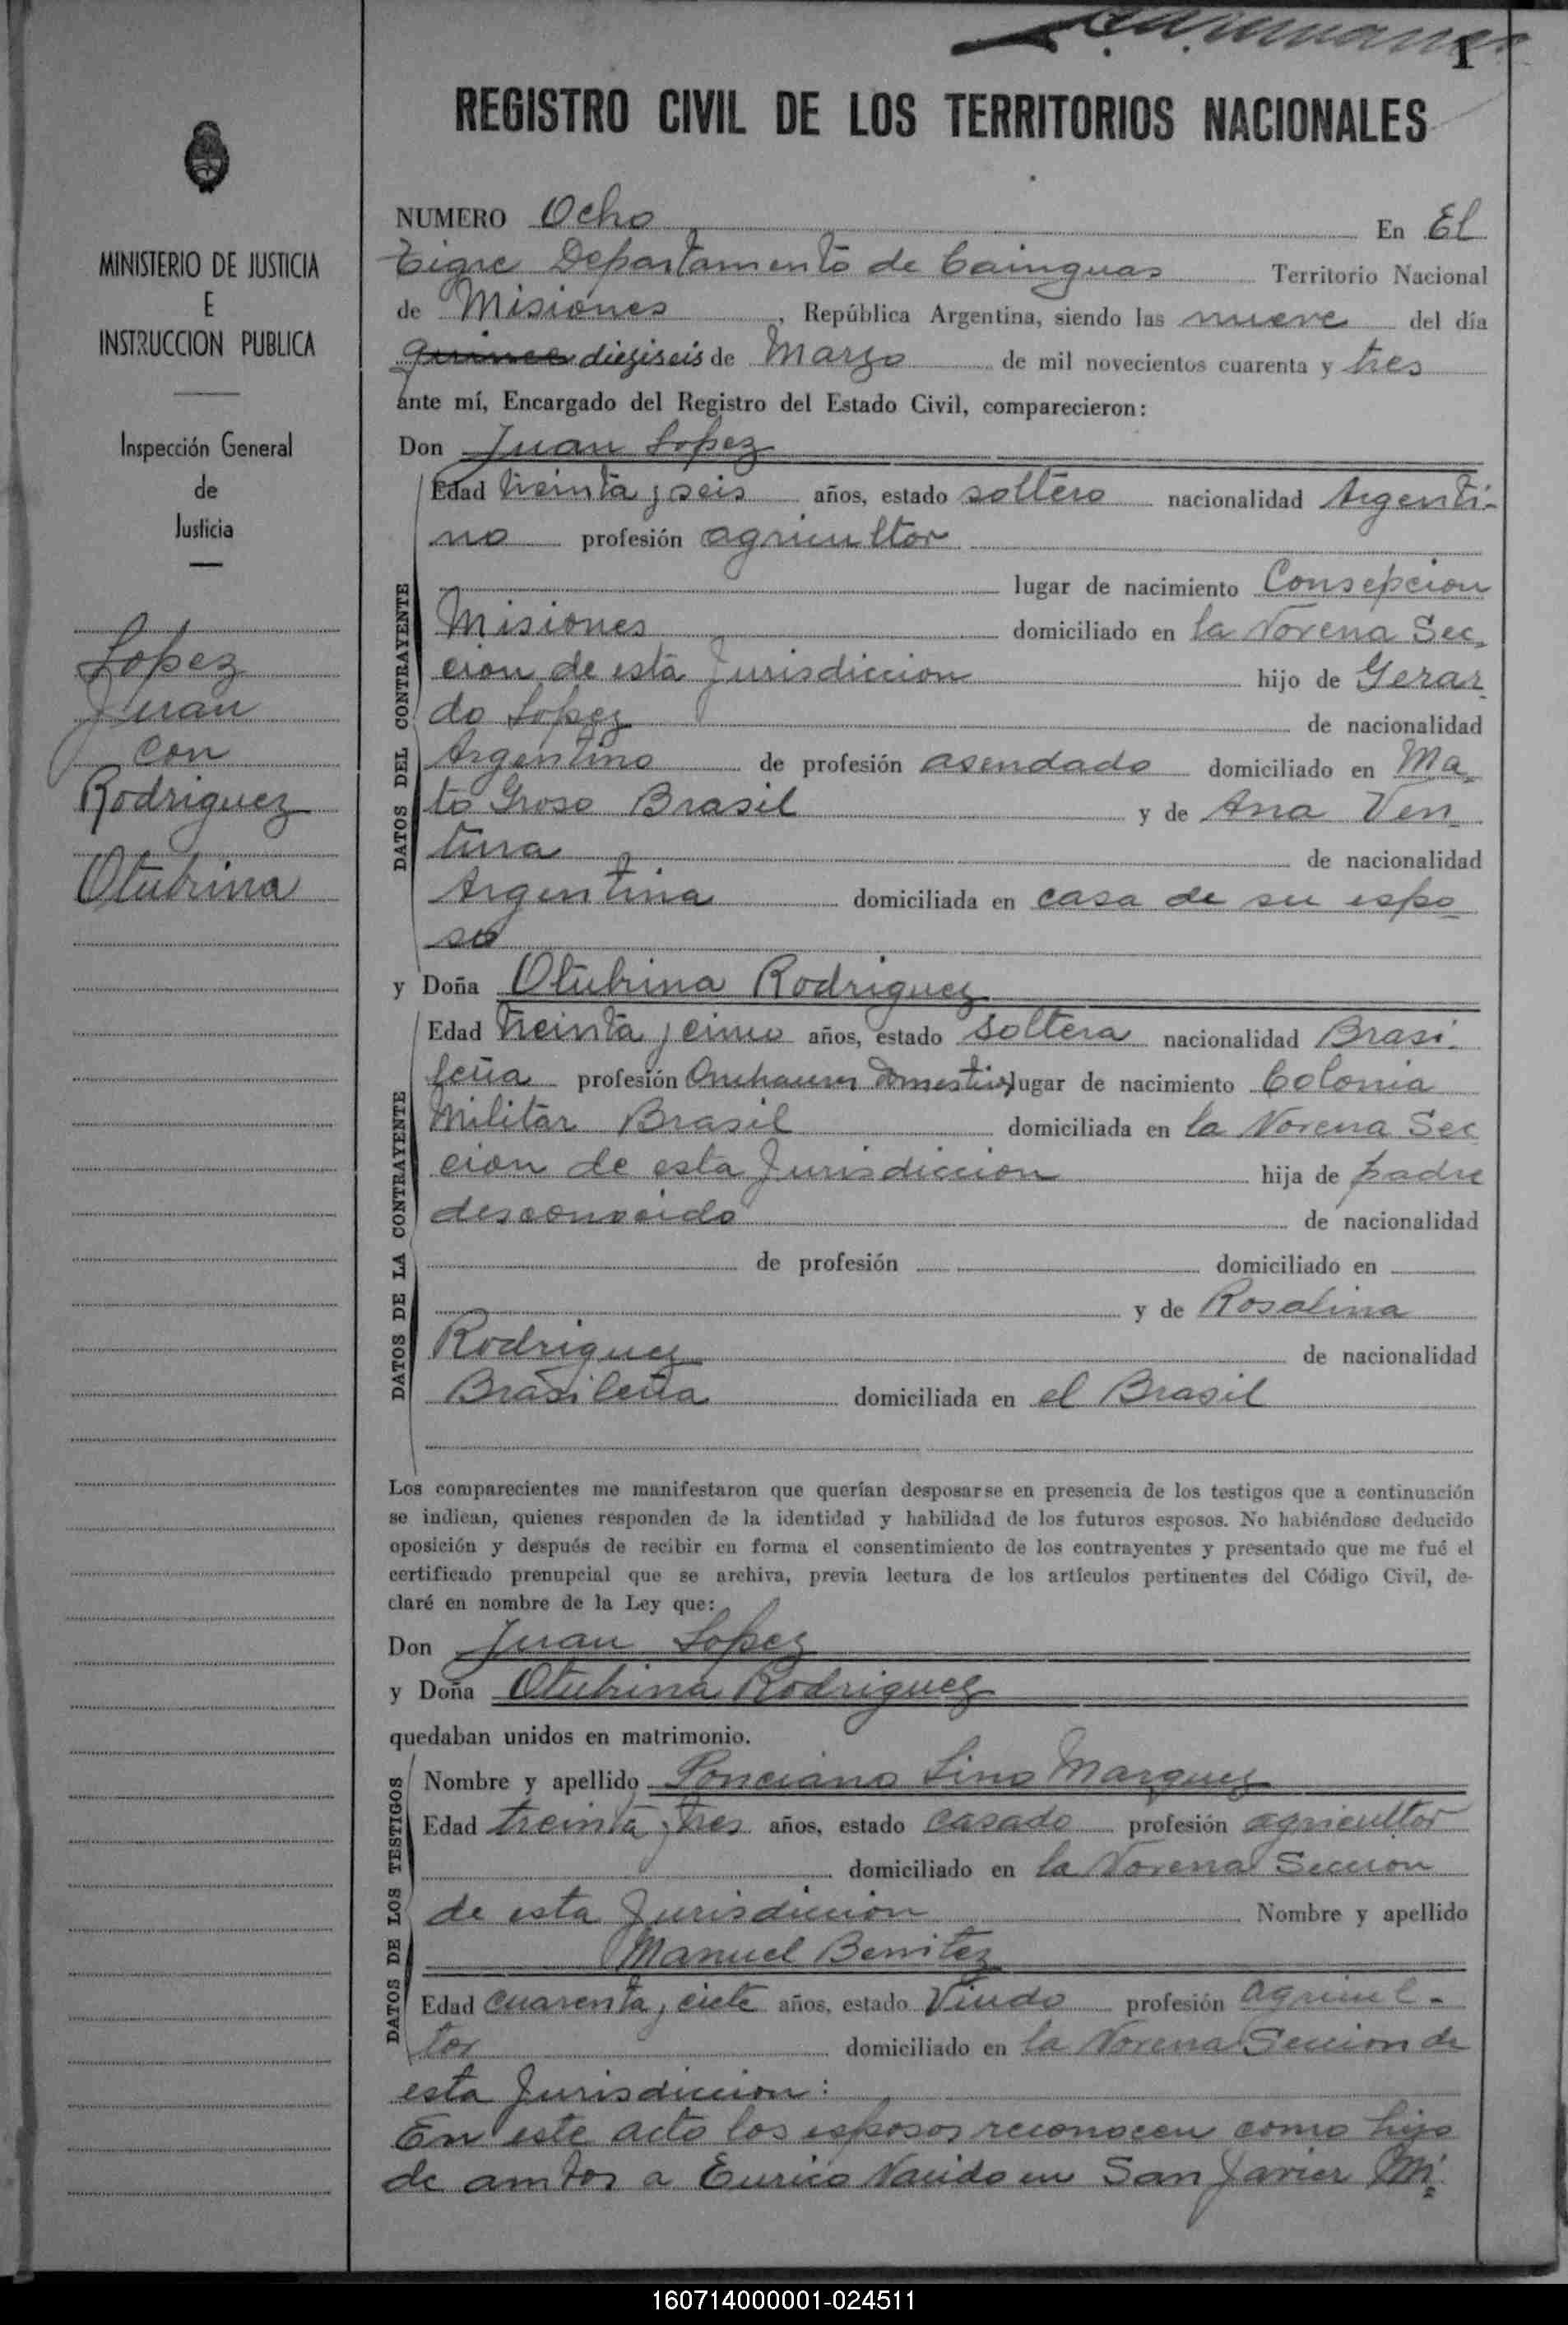 1
REGISTRO CIVIL DE LOS TERRITORIOS NACIONALES
MINISTERIO DE JUSTICIA
E
INSTRUCCION PUBLICA
Inspección General
de
Justicia
Lopez
Juan
con
Rodriguez
Otubrina
NUMERO Ocho En El
Tigre Departamento de Cainguas Territorio Nacional
de Misiones, República Argentina, siendo las nueve del día
quince dieziseis de Marzo de mil novecientos cuarenta y tres
ante mí, Encargado del Registro del Estado Civil, comparecieron:
Don Juan Lopez
DATOS DEL CONTRAYENTE
Edad treinta y seis años, estado soltero nacionalidad Argenti-
no profesión agricultor
lugar de nacimiento Consepcion
Misiones domiciliado en la Novena Sec-
cion de esta Jurisdiccion hijo de Gerar-
do Lopez de nacionalidad
Argentino de profesión asendado domiciliado en Ma-
to Groso Brasil y de Ana Ven-
tura de nacionalidad
Argentina domiciliada en casa de su espo-
so
y Doña Otubrina Rodriguez
DATOS DE LA CONTRAYENTE
Edad treinta y cinco años, estado soltera nacionalidad Brasi-
leña profesión domestico lugar de nacimiento Colonia
Militar Brasil domiciliada en la Novena Sec
cion de esta Jurisdiccion hija de padre
desconocido de nacionalidad
de profesión domiciliado en
y de Rosalina
Rodriguez de nacionalidad
Brasileña domiciliada en el Brasil
Los comparecientes me manifestaron que querían desposarse en presencia de los testigos que a continuación
se indican, quienes responden de la identidad y habilidad de los futuros esposos. No habiéndose deducido
oposición y después de recibir en forma el consentimiento de los contrayentes y presentado que me fué el
certificado prenupcial que se archiva, previa lectura de los artículos pertinentes del Código Civil, de-
claré en nombre de la Ley que:
Don Juan Lopez
y Doña Otubrina Rodriguez
quedaban unidos en matrimonio.
DATOS DE LOS TESTIGOS
Nombre y apellido Ponciano Lino Marquez
Edad treinta y tres años, estado casado profesión agricultor
domiciliado en la Novena Seccion
de esta Jurisdiccion Nombre y apellido
Manuel Benitez
Edad cuarenta y ciete años, estado Viudo profesión agricul-
tor domiciliado en la Novena Seccion de
esta Jurisdiccion:
En este acto los esposos reconocen como hijo
de ambos a Eurico Nacido en San Javier Mi-
160714000001-024511